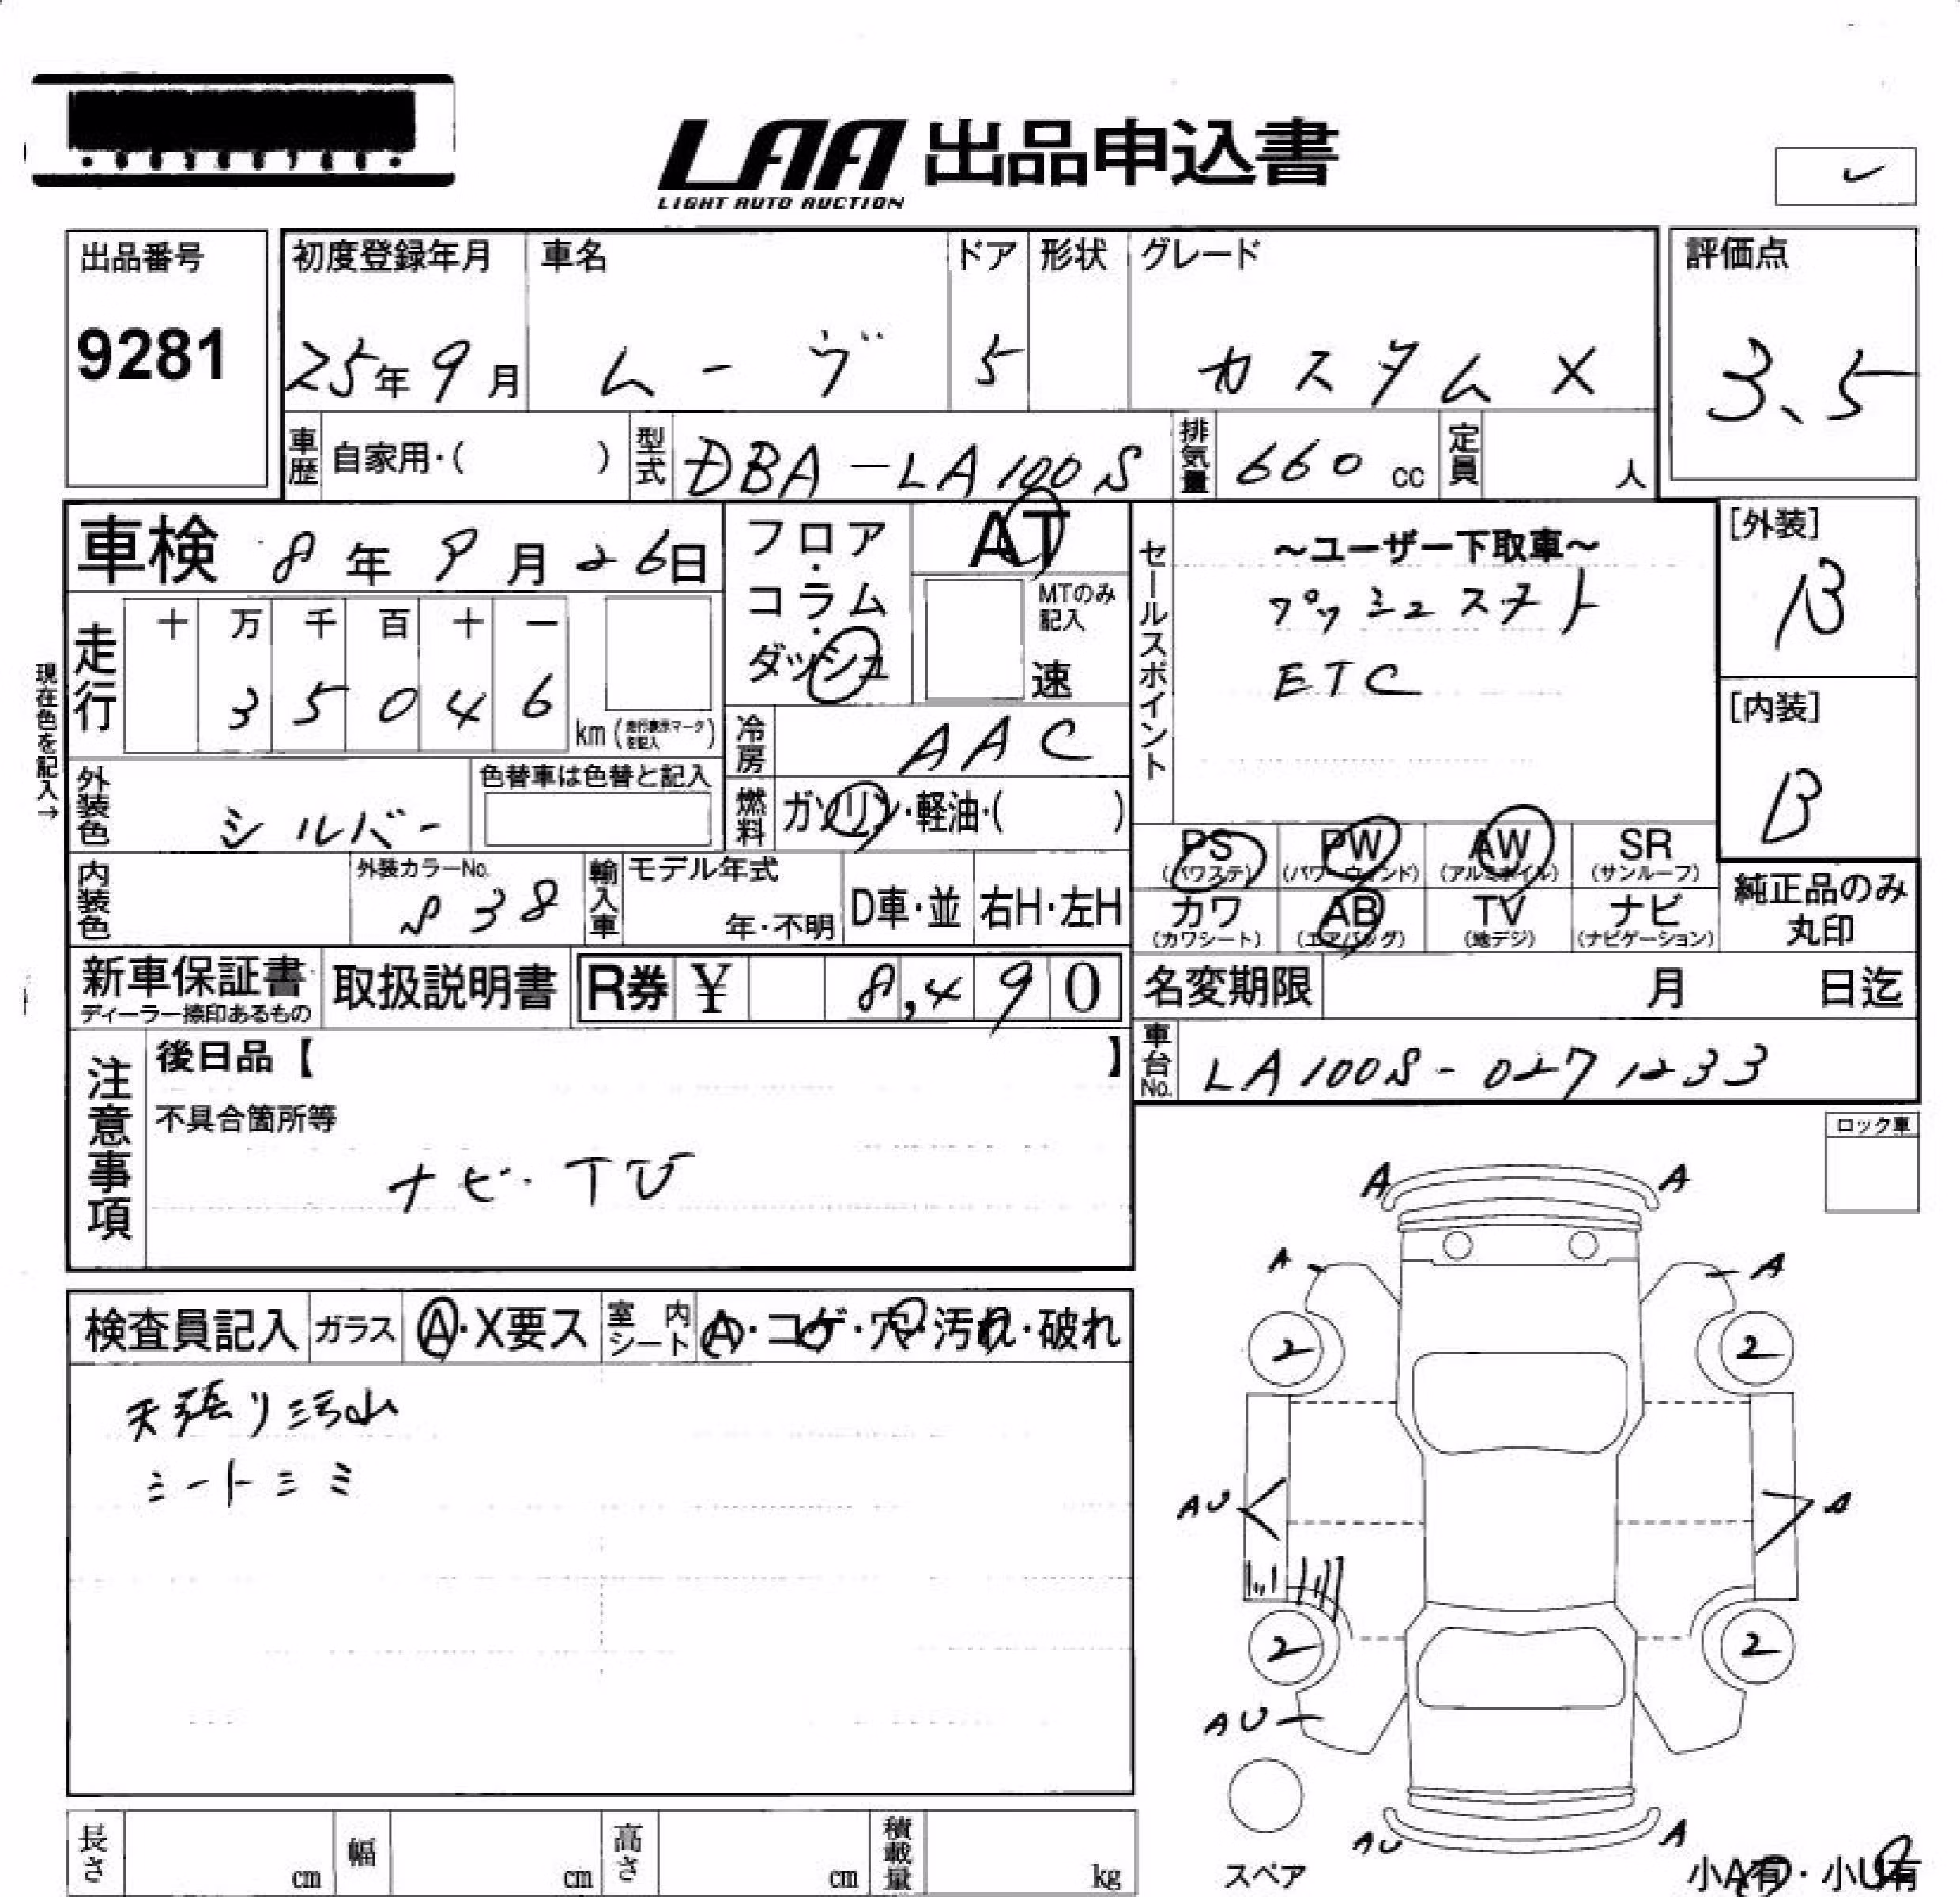 LAA 出品申込書
LIGHT AUTO AUCTION
出品番号
9281
初度登録年月 車名 ドア 形状 グレード
25年9月 ムーヴ 5 カスタムX
評価点
3.5
車歴 自家用・( ) 型式 DBA-LA100S 排気量 660 cc 定員 人
車検 8年9月26日
フロア・コラム・ダッシュ
AT
MTのみ記入
速
セールスポイント
~ユーザー下取車~
プッシュスタート
ETC
[外装]
B
[内装]
B
現在色を記入→
走行 十 万 千 百 十 一
3 5 0 4 6 km(走行表示マークを記入)
冷房 AAC
外装色 シルバー 色替車は色替と記入
燃料 ガソリン・軽油・( )
PS (パワステ) PW (パワーウィンド) AW (アルミホイル) SR (サンルーフ)
カワ (カワシート) AB (エアバッグ) TV (地デジ) ナビ (ナビゲーション)
純正品のみ丸印
内装色 外装カラーNo. S38 輸入車 モデル年式 年・不明 D車・並 右H・左H
新車保証書 ディーラー捺印あるもの 取扱説明書 R券 ¥ 8,490
名変期限 月 日迄
車台No. LA100S-0271233
注意事項
後日品【 】
不具合箇所等
ナビ・TV
ロック車
検査員記入 ガラス A・X要ス 室内シート A・コゲ・穴・汚れ・破れ
天張り汚れ
シートシミ
A A
A A
2 2
AU A
2 2
AU
AU A
スペア
小A有・小U有
長さ cm 幅 cm 高さ cm 積載量 kg